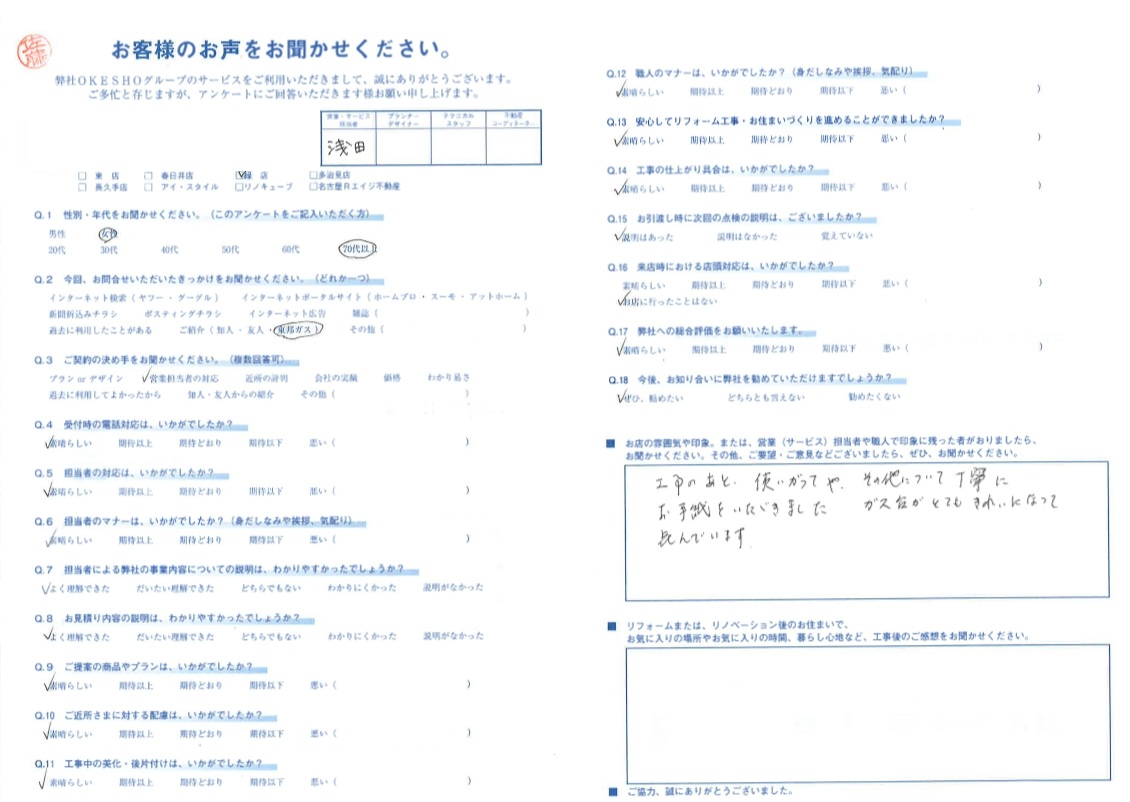 佐藤
お客様のお声をお聞かせください。
弊社OKESHOグループのサービスをご利用いただきまして、誠にありがとうございます。
ご多忙と存じますが、アンケートにご回答いただきます様お願い申し上げます。
営業・サービス担当者 プランナーデザイナー テクニカルスタッフ 不動産コーディネーター
浅田
□ 東 店 □ 春日井店 □緑 店 □多治見店
□ 長久手店 □ アイ・スタイル □リノキューブ □名古屋Rエイジ不動産
Q.1 性別・年代をお聞かせください。（このアンケートをご記入いただく方）
男性 女性
20代 30代 40代 50代 60代 70代以上
Q.2 今回、お問合せいただいたきっかけをお聞かせください。（どれか一つ）
インターネット検索（ヤフー・グーグル） インターネットポータルサイト（ホームプロ・スーモ・アットホーム）
新聞折込みチラシ ポスティングチラシ インターネット広告 雑誌（ ）
過去に利用したことがある ご紹介（知人・友人・東邦ガス） その他（ ）
Q.3 ご契約の決め手をお聞かせください。（複数回答可）
プランorデザイン ✓営業担当者の対応 近所の評判 会社の実績 価格 わかり易さ
過去に利用してよかったから 知人・友人からの紹介 その他（ ）
Q.4 受付時の電話対応は、いかがでしたか？
✓素晴らしい 期待以上 期待どおり 期待以下 悪い（ ）
Q.5 担当者の対応は、いかがでしたか？
✓素晴らしい 期待以上 期待どおり 期待以下 悪い（ ）
Q.6 担当者のマナーは、いかがでしたか？（身だしなみや挨拶、気配り）
✓素晴らしい 期待以上 期待どおり 期待以下 悪い（ ）
Q.7 担当者による弊社の事業内容についての説明は、わかりやすかったでしょうか？
✓よく理解できた だいたい理解できた どちらでもない わかりにくかった 説明がなかった
Q.8 お見積り内容の説明は、わかりやすかったでしょうか？
✓よく理解できた だいたい理解できた どちらでもない わかりにくかった 説明がなかった
Q.9 ご提案の商品やプランは、いかがでしたか？
✓素晴らしい 期待以上 期待どおり 期待以下 悪い（ ）
Q.10 ご近所さまに対する配慮は、いかがでしたか？
✓素晴らしい 期待以上 期待どおり 期待以下 悪い（ ）
Q.11 工事中の美化・後片付けは、いかがでしたか？
✓素晴らしい 期待以上 期待どおり 期待以下 悪い（ ）
Q.12 職人のマナーは、いかがでしたか？（身だしなみや挨拶、気配り）
✓素晴らしい 期待以上 期待どおり 期待以下 悪い（ ）
Q.13 安心してリフォーム工事・お住まいづくりを進めることができましたか？
✓素晴らしい 期待以上 期待どおり 期待以下 悪い（ ）
Q.14 工事の仕上がり具合は、いかがでしたか？
✓素晴らしい 期待以上 期待どおり 期待以下 悪い（ ）
Q.15 お引渡し時に次回の点検の説明は、ございましたか？
✓説明はあった 説明はなかった 覚えていない
Q.16 来店時における店頭対応は、いかがでしたか？
素晴らしい 期待以上 期待どおり 期待以下 悪い（ ）
✓お店に行ったことはない
Q.17 弊社への総合評価をお願いいたします。
✓素晴らしい 期待以上 期待どおり 期待以下 悪い（ ）
Q.18 今後、お知り合いに弊社を勧めていただけますでしょうか？
✓ぜひ、勧めたい どちらとも言えない 勧めたくない
■ お店の雰囲気や印象。または、営業（サービス）担当者や職人で印象に残った者がおりましたら、
お聞かせください。その他、ご要望・ご意見などございましたら、ぜひ、お聞かせください。
工事のあと、使いがってや、その他について丁寧に
お手紙をいただきました ガス台がとてもきれいになって
喜んでいます
■ リフォームまたは、リノベーション後のお住まいで、
お気に入りの場所やお気に入りの時間、暮らし心地など、工事後のご感想をお聞かせください。
■ ご協力、誠にありがとうございました。